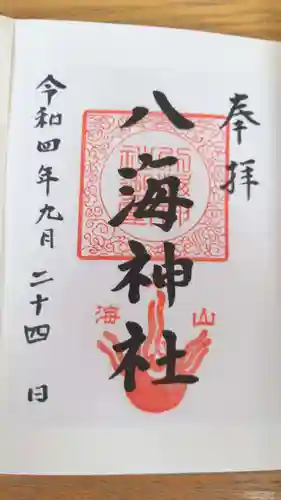 奉拝
八海神社
山
海
令和四年九月二十四日